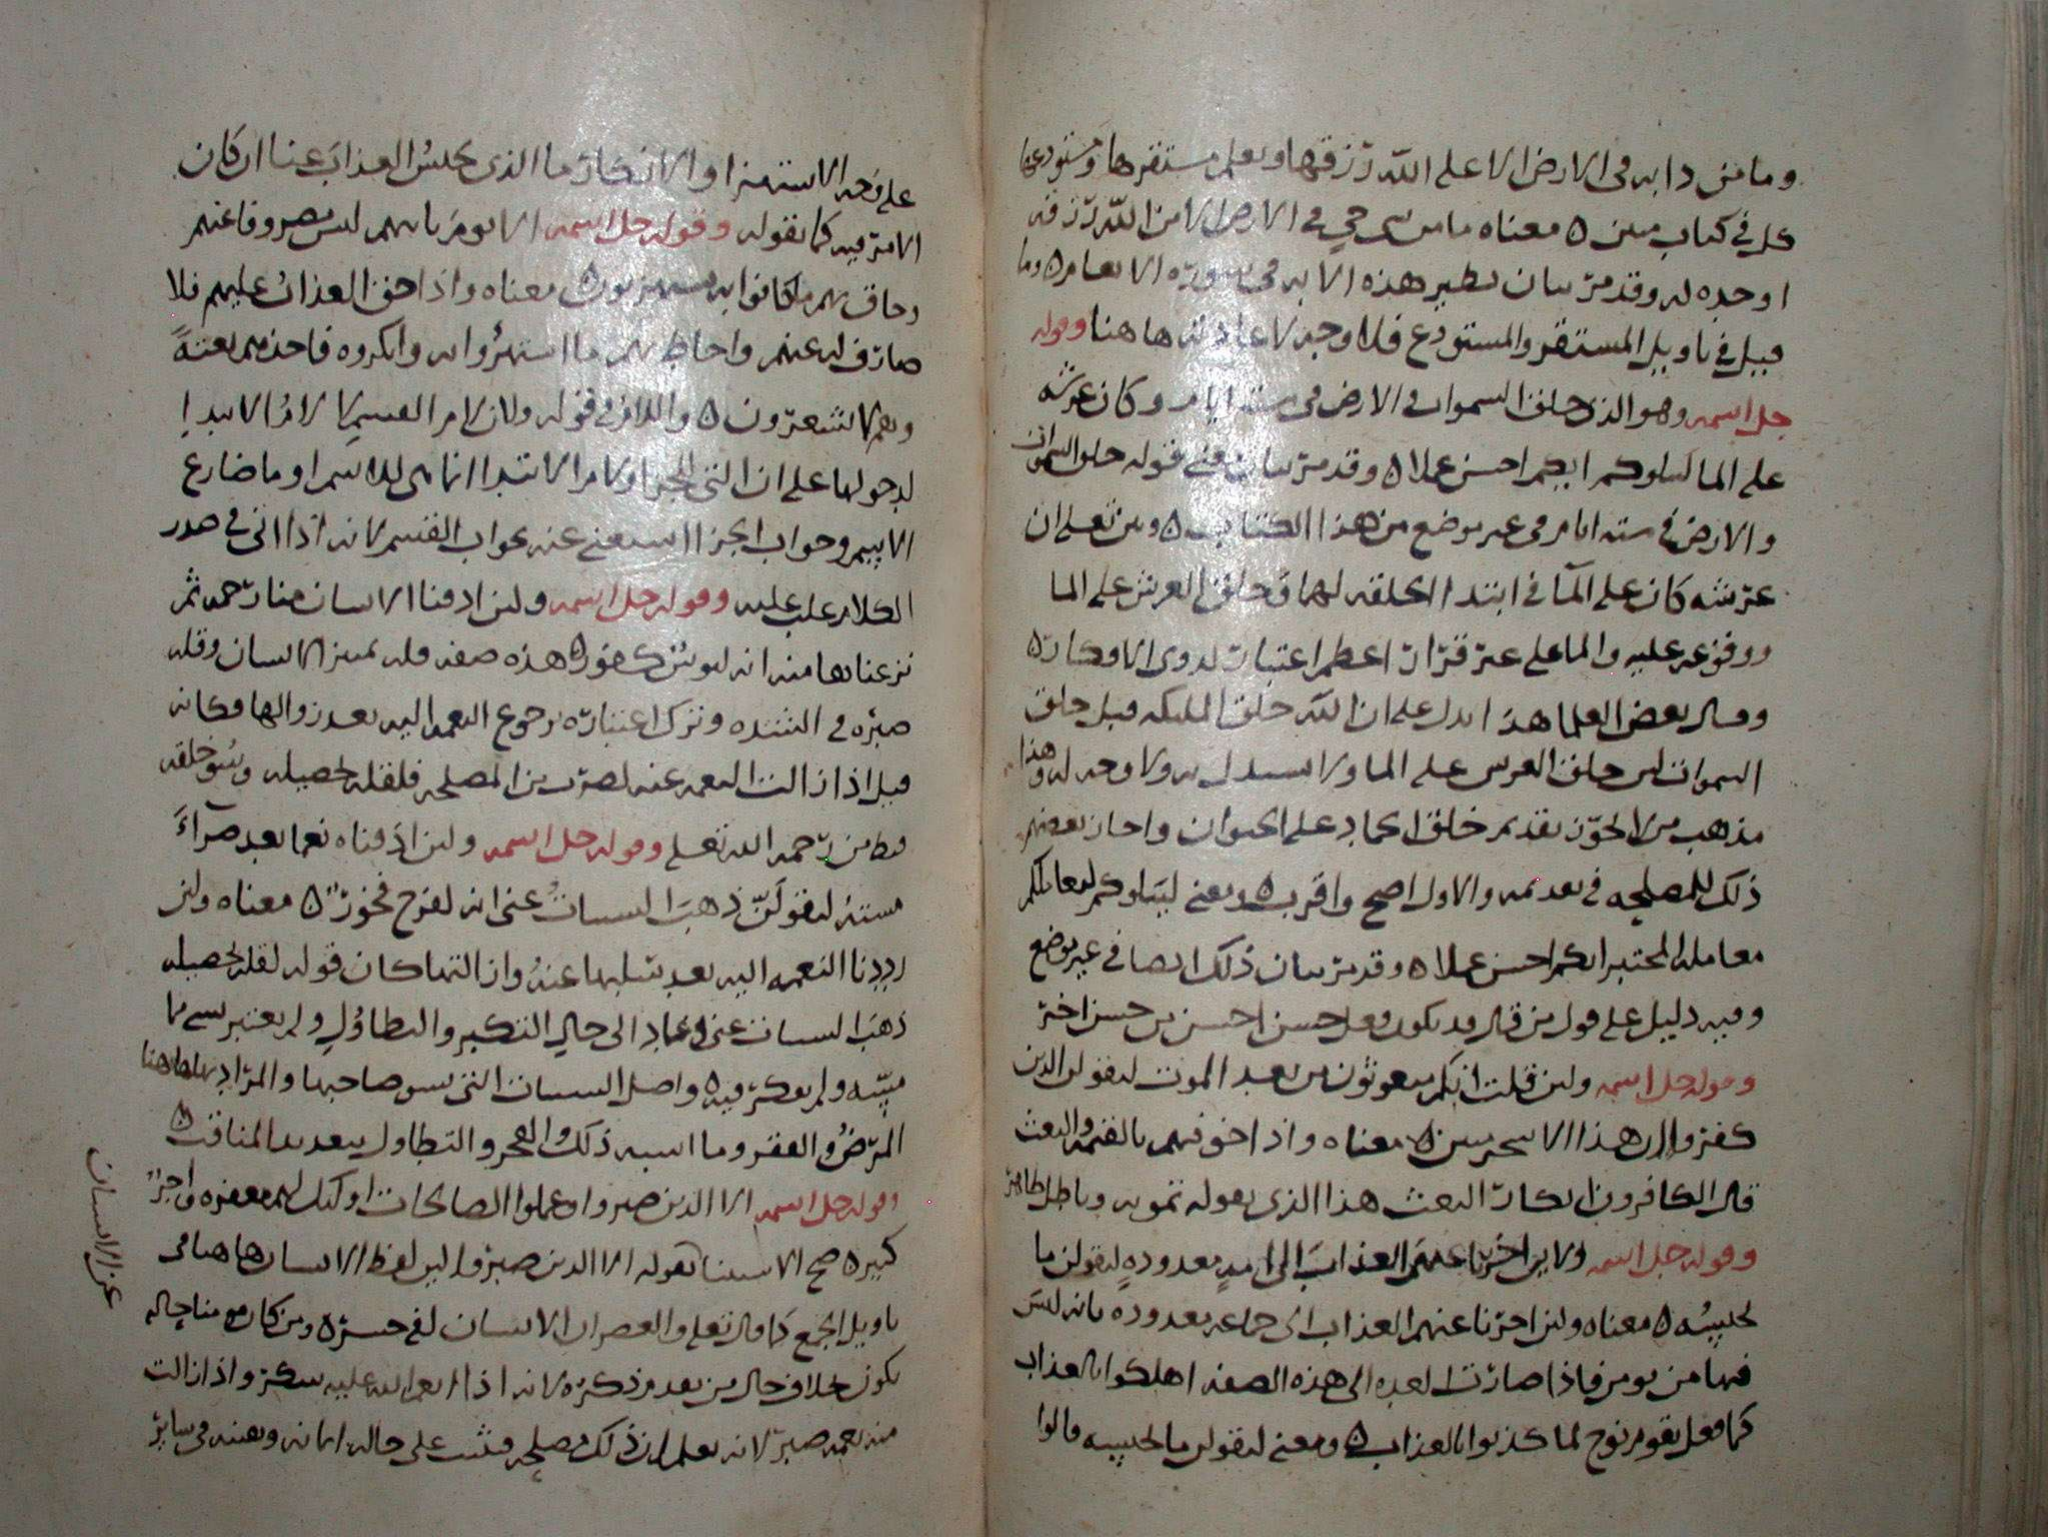 وما من دابه فى الارض الا على الله رزقها ويعلم مستقرها ومستودعها
كل فى كتاب مبين ٥ معناه ما من شى حي فى الارض الا من الله رزقه
اوجده له وقد مر بيان نظير هذه الايه فى سورة الانعام ٥ وما
قيل فى تاويل المستقر والمستودع فلا وجه لاعادته هاهنا وقوله
جل اسمه وهو الذى خلق السموات والارض فى ستة ايام وكان عرشه
على الما ليبلوكم ايكم احسن عملا ٥ وقد مر بيان معنى قوله خلق السموات
والارض فى ستة ايام فى غير موضع من هذا الكتاب ٥ وبين تعلى ان
عرشه كان على المآ فى ابتدا الخلقه لهما وخلق العرش على الما
ووقوعه عليه والما على غير قرار اعظم اعتبار لذوى الافكار ٥
وقال بعض العلما هذا يدل على ان الله خلق المليكه قبل خلق
السموات لان خلق العرش على الما ولا مستدل به ولا وجه له وهذا
مذهب من لا يجوز تقديم خلق الجماد على الحيوان واجاز بعضهم
ذلك للمصلحه فى تقدمه والاول اصح واقرب ٥ ومعنى ليبلوكم ليعاملكم
معامله المختبر ايكم احسن عملا ٥ وقد مر بيان ذلك ايضا فى غير موضع
وفيه دليل على قول من قال قد يكون فعل حسن احسن من حسن اخر
وقوله جل اسمه ولين قلت انكم مبعوثون من بعد الموت ليقولن الذين
كفروا ان هذا الا سحر مبين ٥ معناه واذا خوفتهم بالقيمه والبعث
قال الكافرون انكار البعث هذا الذى يقوله تمويه وباطل ظاهر
وقوله جل اسمه ولاين اخرنا عنهم العذاب الى امة معدودة ليقولن ما
يحبسه ٥ معناه ولين اخرنا عنهم العذاب الى جماعه معدوده بانه ليس
فيها من يومن فاذا صارت العده الى هذه الصفه اهلكوا بالعذاب
كما فعل بقوم نوح لما كذبوا بالعذاب ٥ ومعنى ليقولن ما يحبسه قالوا
على وجه الاستهزا والانكار ما الذى يحبس العذاب عنا ان كان
الامر فيه كما يقوله وقوله جل اسمه الا يوم ياتيهم ليس مصروفا عنهم
وحاق بهم ما كانوا به يستهزيون ٥ معناه واذا حق العذاب عليهم فلا
صارف له عنهم واحاط بهم ما استهزوا به وانكروه فاخذهم بغتةً
وهم لا يشعرون ٥ واللام فى قوله ولين لام القسم لا لام الابتدا
لدخولها على ان التى للجزا ولام الابتدا انما هى للاسم او ما ضارع
الاسم وجواب الجزا استغنى عنه بجواب القسم لانه اذا اتى فى صدر
الكلام غلب عليه وقوله جل اسمه ولين اذقنا الانسان منا رحمه ثم
نزعناها منه انه ليوس كفور ٥ هذه صفه قله تمييز الانسان وقله
صبره فى الشده وترك اعتباره برجوع النعمه اليه بعد زوالها وكانه
قيل اذا زالت النعمه عنه لضرب من المصلحه فلقله تحصيله وسو خلقه
قنط من رحمه الله تعلى وقوله جل اسمه ولين اذقناه نعما بعد ضرآءَ
مسته ليقولنّ ذهب السيات عنى انه لفرح فخور ٥ معناه ولين
رددنا النعمه اليه بعد سلبها عنه وازالتها كان قوله لقله تحصيله
ذهب السيات عنى وعاد الى حال التكبر والتطاول ولم يعتبر بسى مما
مسه ولم يفكر فيه ٥ واصل السيات التى تسو صاحبها والمراد بها هاهنا
المرض والفقر وما اشبه ذلك والفخر والتطاول بتعديد المناقب ٥
وقوله جل اسمه الا الذين صبروا وعملوا الصالحات اوليك لهم مغفره واجر
كبير ٥ صح الاستثنا بقوله الا الذين صبروا لان لفظ الانسان هاهنا فى
تاويل الجمع كما قال تعلى والعصر ان الانسان لفى خسر ٥ ومن كان مومنا حاله
يكون بخلاف حال من تقدم ذكره لانه اذا انعم الله عليه شكر واذا زالت
منه نعمه صبر لانه يعلم ان ذلك مصلحه فثبت على حاله ايمانه ويقينه فى ساير
عن الانسان